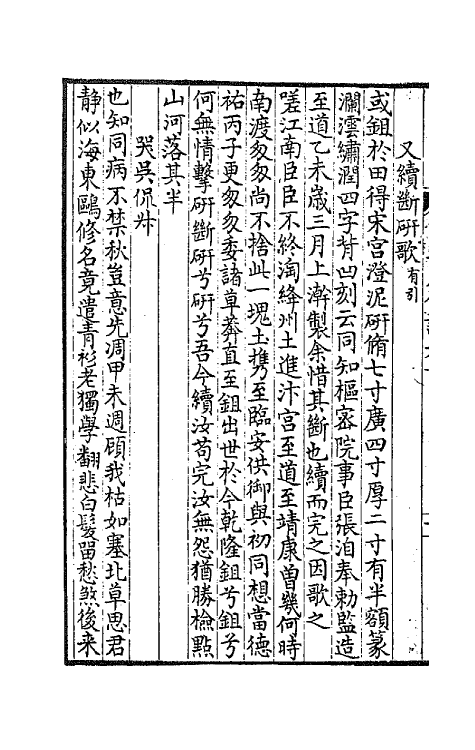 又續斷硏歌有引
或鉏於田得宋宮澄泥硏脩七寸廣四寸厚二寸有半額篆
瀾澐繡潤四字背凹刻云同知樞宻院事臣張洎奉勅監造
至道乙未嵗三月上澣製余惜其斷也續而完之因歌之
嗟江南臣臣不終淘絳州土進汴宮至道至靖康曽幾何時
南渡匆匆尚不捨此一塊土携至臨安供御與初同想當德
祐丙子更匆匆委諸草莽直至鉏出世於今乾隆鉏兮鉏兮
何無情擊硏斷硏兮硏兮吾今續汝苟完汝無怨猶勝檢㸃
山河落其半
哭吳侃叔
也知同病不禁秋豈意先凋甲未週顧我枯如塞北草思君
静似海東鷗修名竟遣青衫老獨學翻悲白髮留愁煞後来